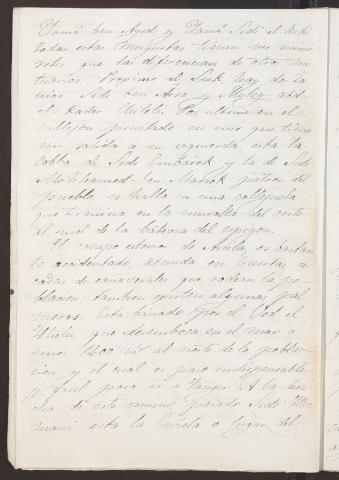 Jamá ben Ayud, y Jamá Sidi el
todas estas Mezquitas tienen un mina
rete que las diferencian de otros san
tuarios. Proximo al Suk hay dos
mas Sidi ben Aisa y Muley abd
el-Kader Chiloli. Por ultimo en el
callejon pintado en uno que tiene
sin salida a su izquierda, esta la
Cobba de Sidi Embarek y la de Sidi
Mohhamed-ben-Marzok patron del
pueblo, se halla en una callejuela
que termina en la muralla del oeste
al sud de la bateria del espigon.
El campo exterior de Arzila, es bastan
te accidentado, abunda en huertas
cadas de cañaverales que rodean la po
blacion; tambien existen algunas pal
meras. Esta bañado por el Ued el
que desemboca en el mar a
unos 1200 m/. al norte de la pobla
cion, y el cual es paso indispensable
y facil para ir a Tanger. A la dere
cha de este camino pasado Sidi
esta la o lugar del